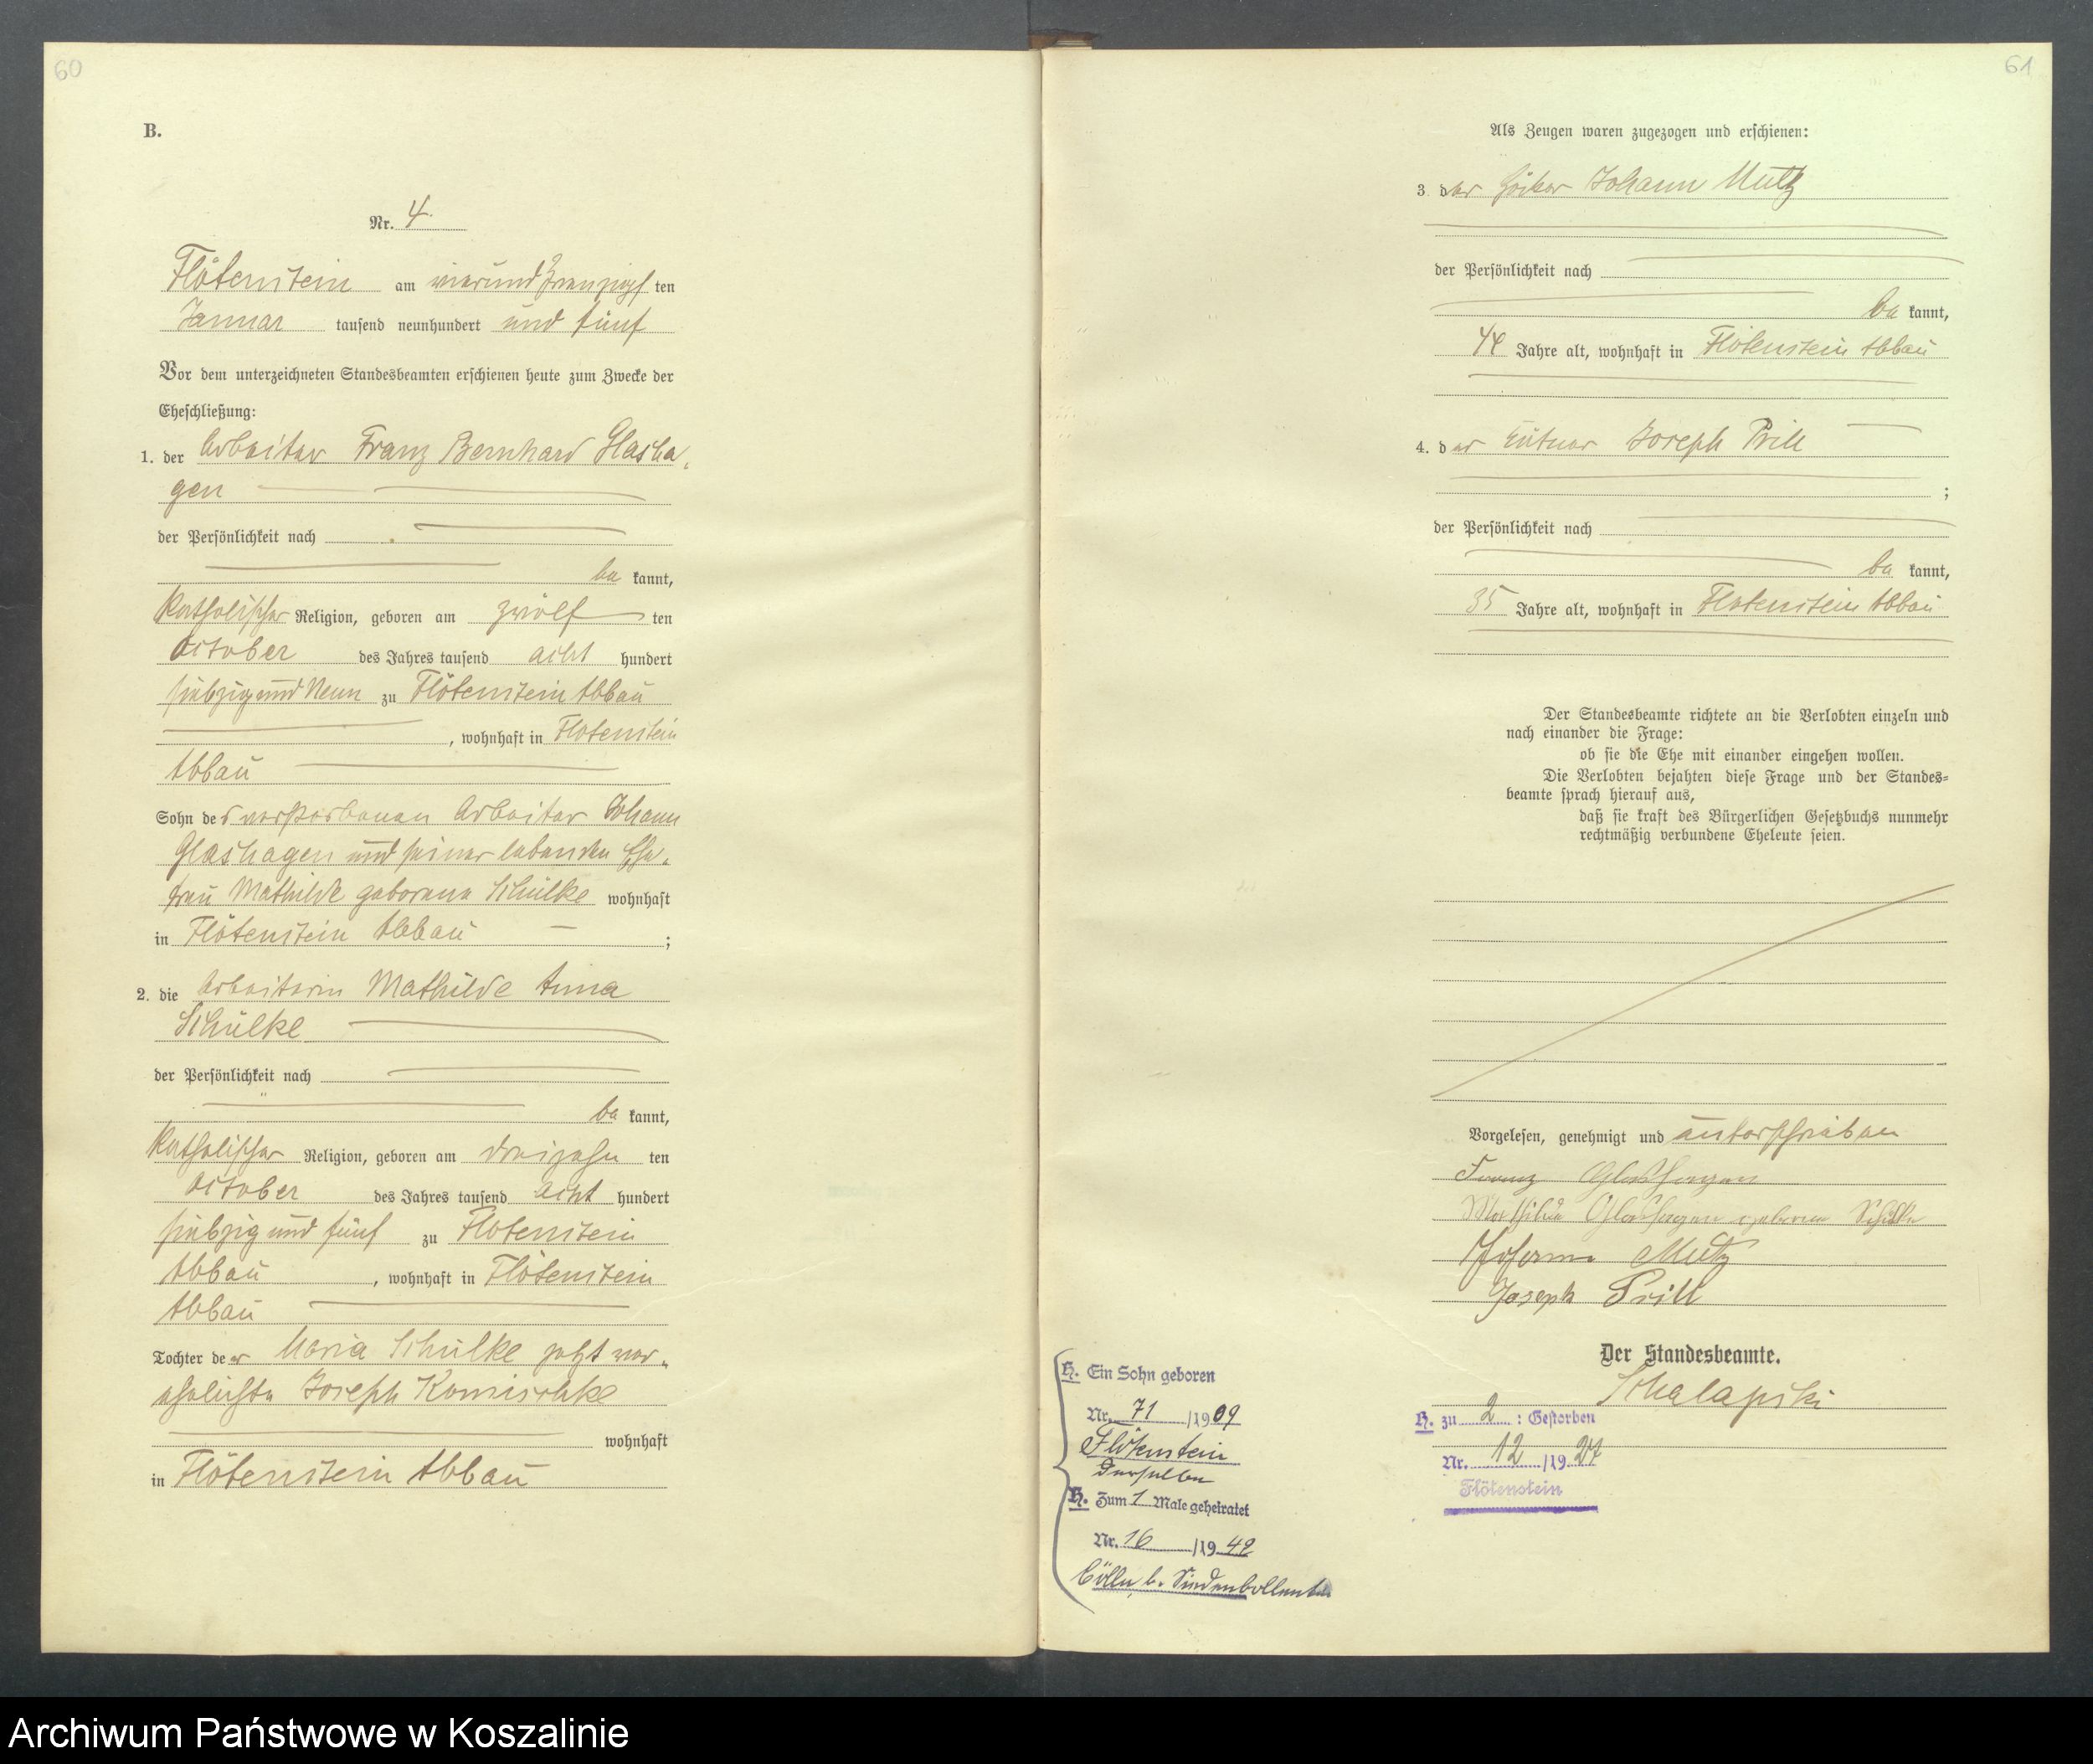 60
B.
Nr. 4.
Flötenstein am vierundzwanzigsten
Januar tausend neunhundert und fünf
Vor dem unterzeichneten Standesbeamten erschienen heute zum Zwecke der
Eheschließung:
1. der Arbeiter Franz Bernhard Glasha-
gen
der Persönlichkeit nach
be kannt,
katholischer Religion, geboren am zwölf ten
October des Jahres tausend acht hundert
siebzig und Neun zu Flötenstein Abbau
, wohnhaft in Flötenstein
Abbau
Sohn des verstorbenen Arbeiter Johann
Glashagen und seiner lebenden Ehe-
frau Mathilde geborene Schülke wohnhaft
in Flötenstein Abbau ;
2. die Arbeiterin Mathilde Anna
Schülke
der Persönlichkeit nach
be kannt,
katholischer Religion, geboren am dreizehn ten
October des Jahres tausend acht hundert
siebzig und fünf zu Flötenstein
Abbau , wohnhaft in Flötenstein
Abbau
Tochter der Maria Schülke jetzt ver-
ehelichte Joseph Komischke
wohnhaft
in Flötenstein Abbau
61
Als Zeugen waren zugezogen und erschienen:
3. der Johann Mutz
der Persönlichkeit nach
be kannt,
44 Jahre alt, wohnhaft in Flötenstein Abbau
4. der Joseph Prill
;
der Persönlichkeit nach
be kannt,
35 Jahre alt, wohnhaft in Flötenstein Abbau
Der Standesbeamte richtete an die Verlobten einzeln und
nach einander die Frage:
ob sie die Ehe mit einander eingehen wollen.
Die Verlobten bejahten diese Frage und der Standes-
beamte sprach hierauf aus,
daß sie kraft des Bürgerlichen Gesetzbuchs nunmehr
rechtmäßig verbundene Eheleute seien.
Vorgelesen, genehmigt und unterschrieben
Franz Glashagen
Mathilde Glashagen geborene Schülke
Johann Mutz
Joseph Prill
Der Standesbeamte.
Schalapski
H. Ein Sohn geboren
Nr. 71 /1909
Flötenstein
Derselbe
H. Zum 1 Male geheiratet
Nr. 16 /1942
Cölln b. Siedenbollentin
H. zu 2 : Gestorben
Nr. 12 /1927
Flötenstein
Archiwum Państwowe w Koszalinie